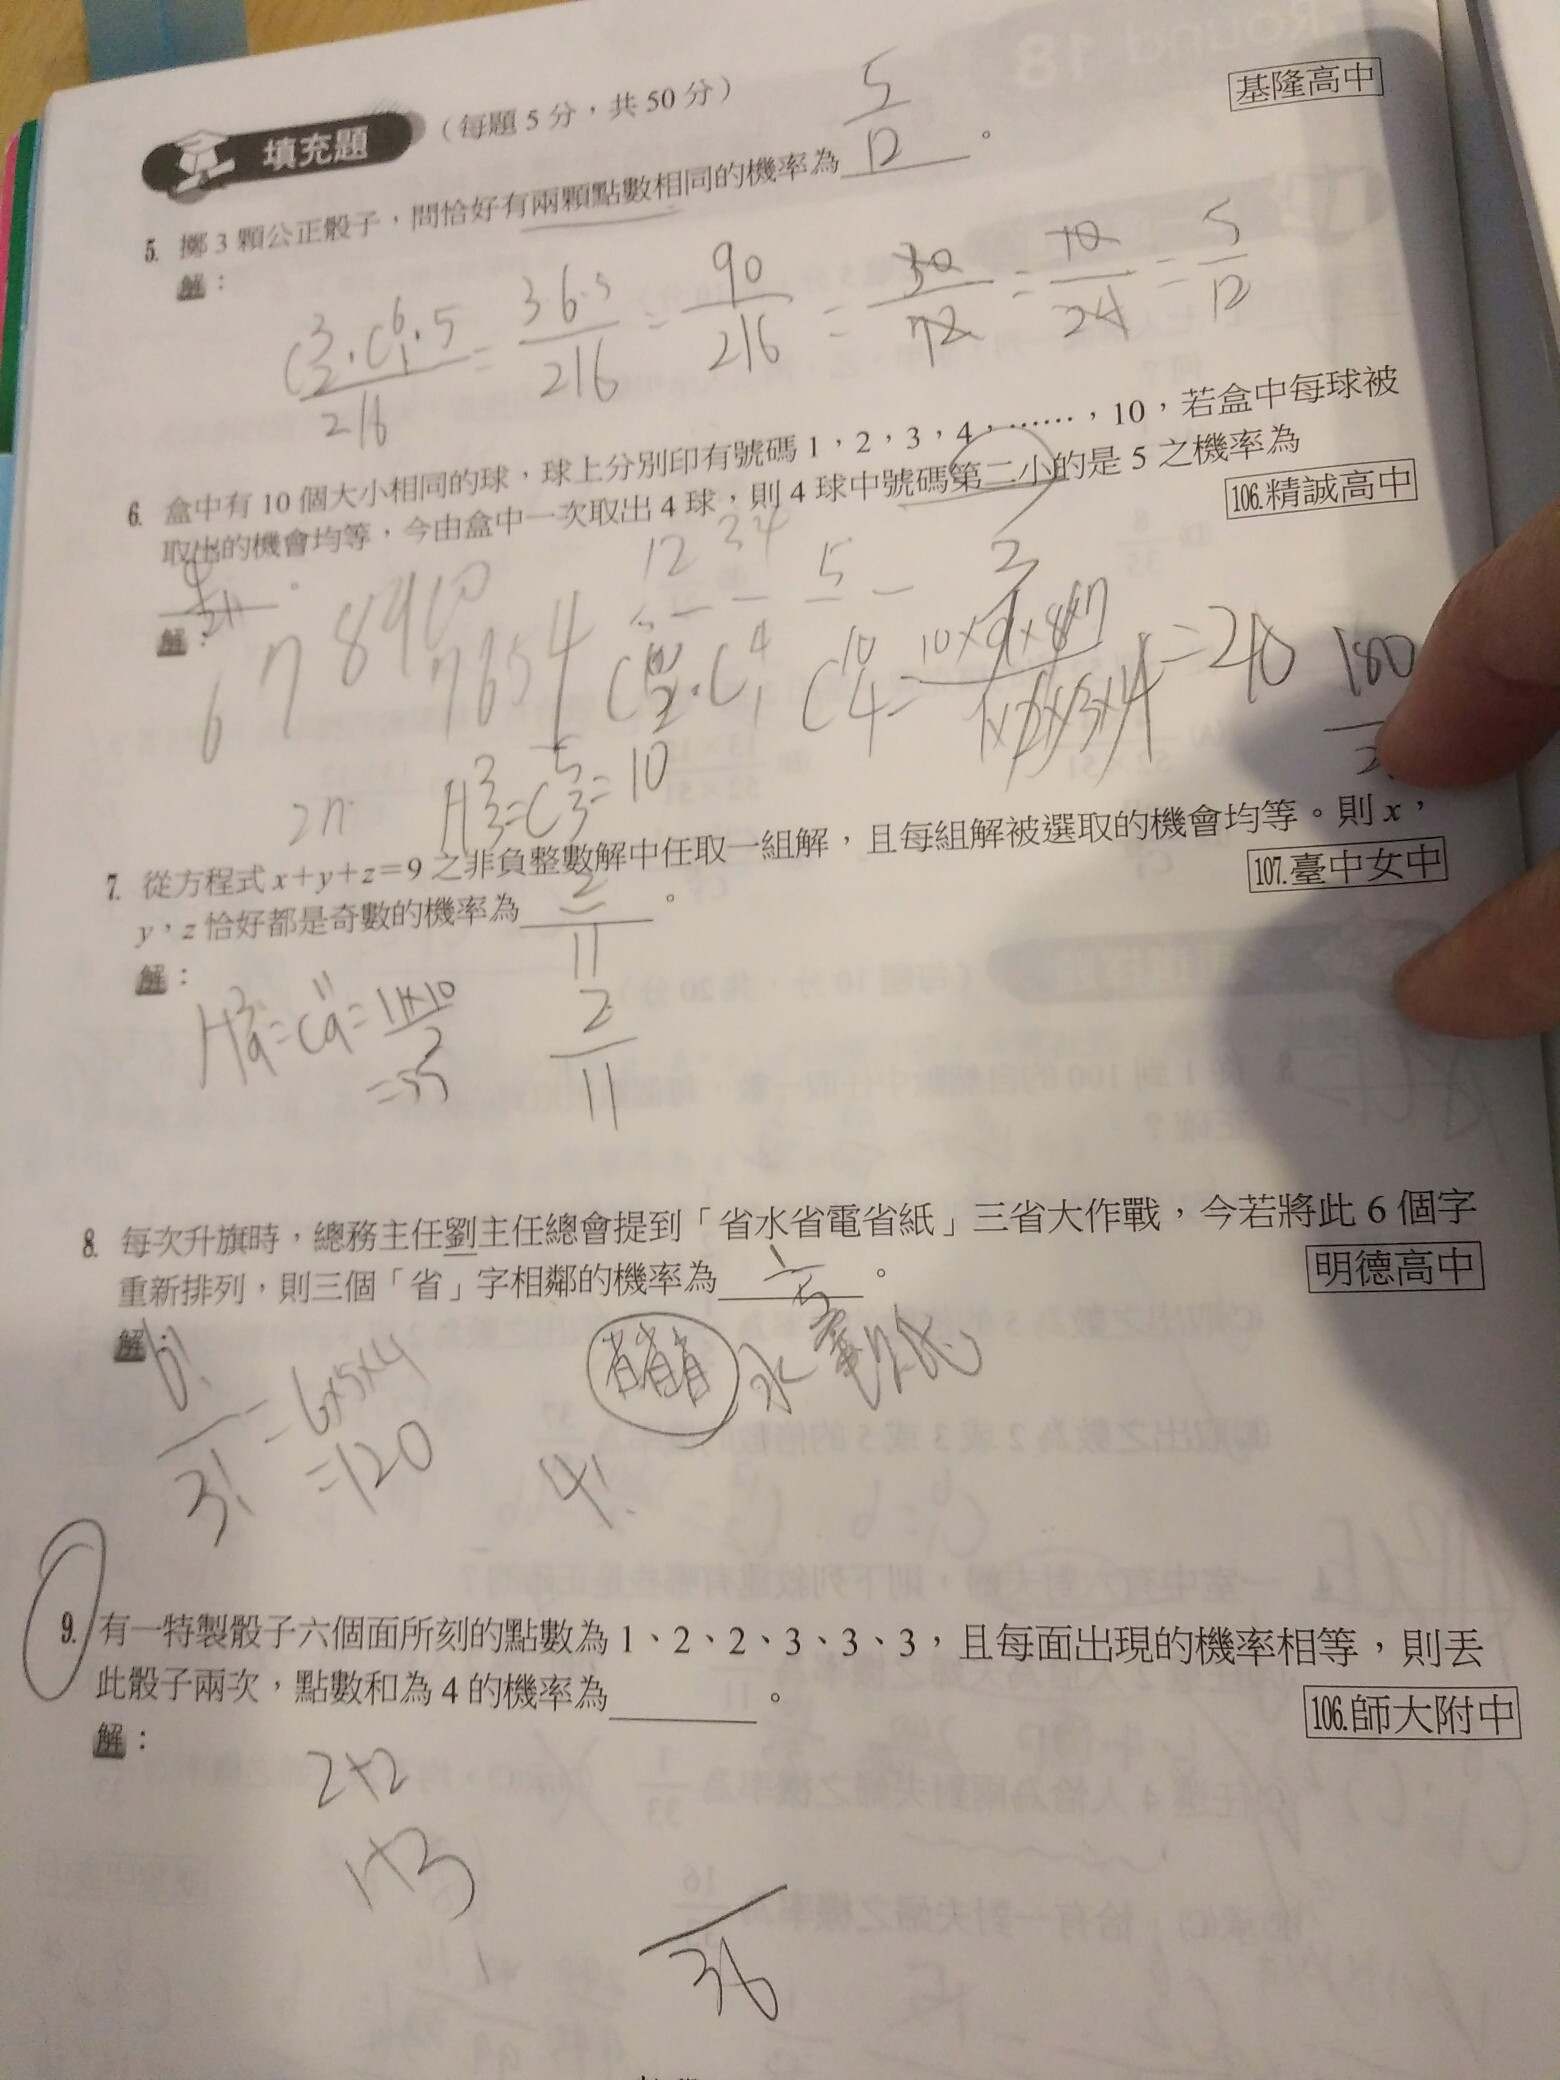 填充題 (每題 5 分，共 50 分)
5. 擲 3 顆公正骰子，問恰好有兩顆點數相同的機率為 5/12 。 基隆高中
解：
C³₂·C⁶₁·5/216 = 3·6·5/216 = 90/216 = 30/72 = 10/24 = 5/12
6. 盒中有 10 個大小相同的球，球上分別印有號碼 1，2，3，4，……，10，若盒中每球被
取出的機會均等，今由盒中一次取出 4 球，則 4 球中號碼第二小的是 5 之機率為
106.精誠高中
。
解：
12 34 5
6 7 8 9 10
7 6 5 4
C⁴₁ C¹⁰₄ = 10×9×8×7/1×2×3×4 = 210
H³₃=C⁵₃=10
7. 從方程式 x+y+z=9 之非負整數解中任取一組解，且每組解被選取的機會均等。則 x，
y，z 恰好都是奇數的機率為 2/11 。 107.臺中女中
解：
H³₉=C¹¹₉=11×10/2
=55
2/11
8. 每次升旗時，總務主任劉主任總會提到「省水省電省紙」三省大作戰，今若將此 6 個字
重新排列，則三個「省」字相鄰的機率為 1/5 。 明德高中
解：
6!/3! = 6×5×4
=120
省省省 水 電 紙
4!
9. 有一特製骰子六個面所刻的點數為 1、2、2、3、3、3，且每面出現的機率相等，則丟
此骰子兩次，點數和為 4 的機率為 。 106.師大附中
解：
2+2
1+3
36